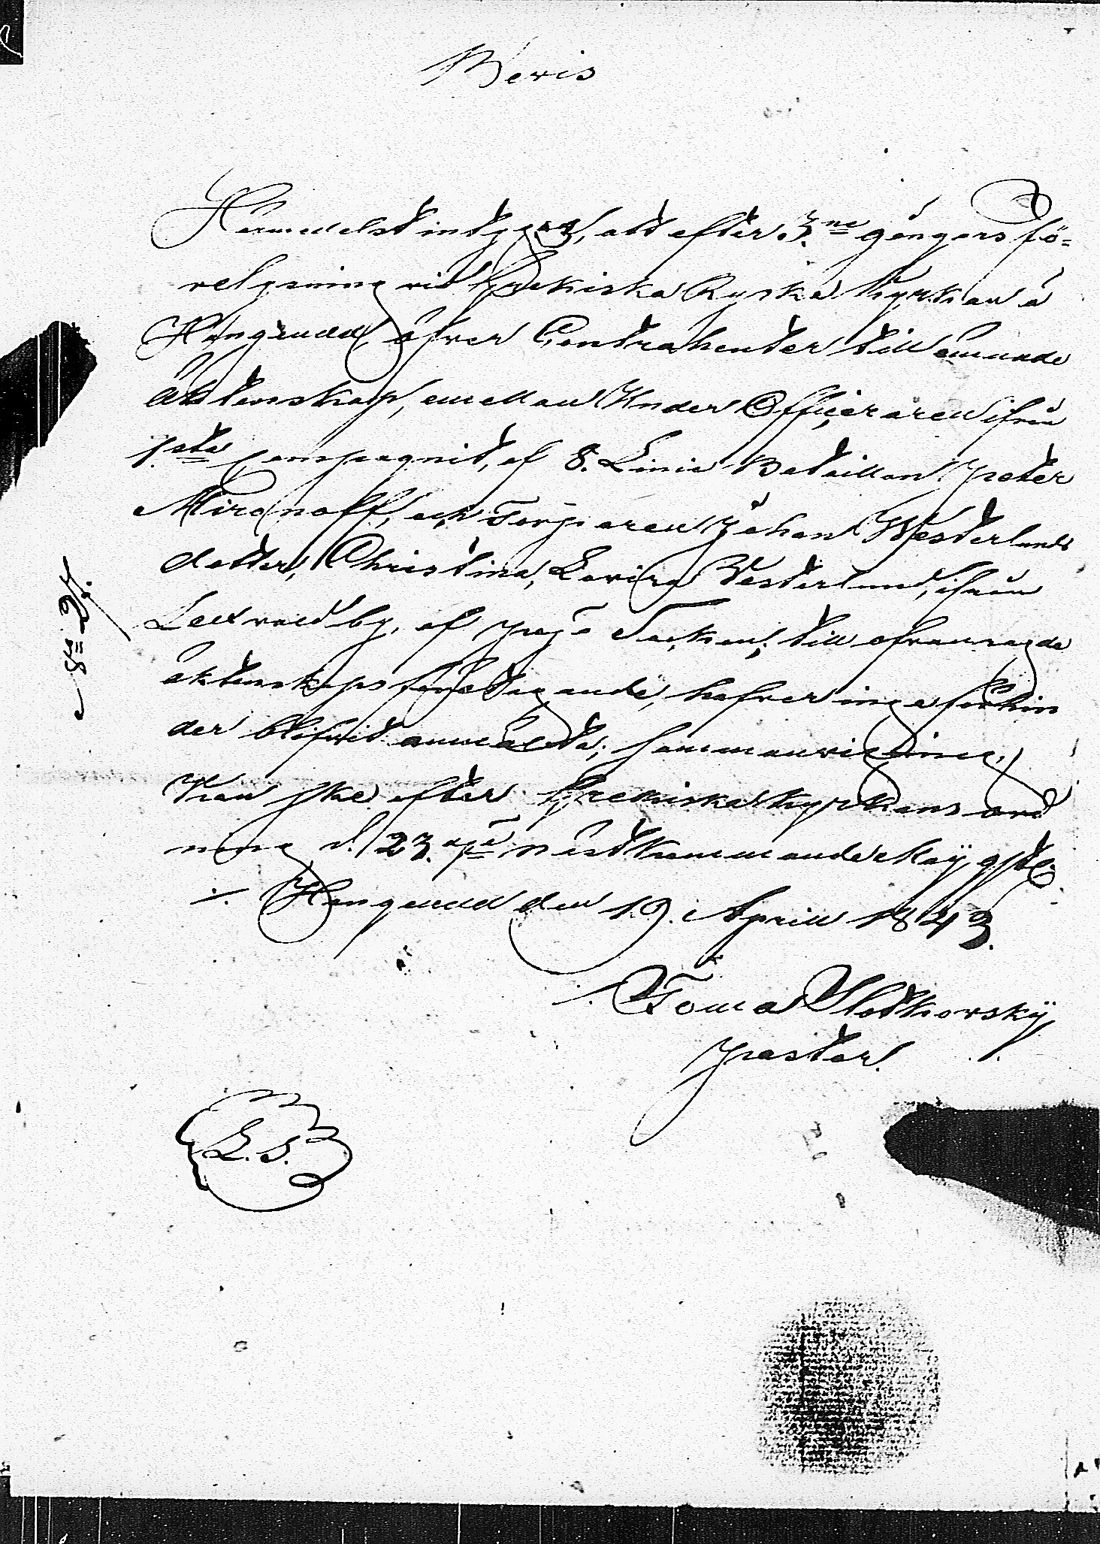 Bevis
Härmedelst intygas, att efter 3.ne gångers fö-
relysning vid Grekiska Ryska Kyrkan å
Hangöudd öfver Contrahenter till ämnade
äktenskap, emellan Under Officeraren ifrån
1.sta Compagnit, af 8. Linie Bataillon Peter
Mironoff, och Torparen Johan Westerlunds
dotter, Christina, Lovisa Westerlund, ifrån
by, af Pojo Socken; till ofvansagde
äktenskaps fortgående, hafver inga förhin
der blifvit anmälda; sammanvigning,
kan ske efter Grekiska kyrkans ord
ning d. 23. nästkommande Maÿ
Hangöudd den 19. Aprill 1843.
Foma Slotkovskÿ
Pastor.
L. S.
N=o 27.